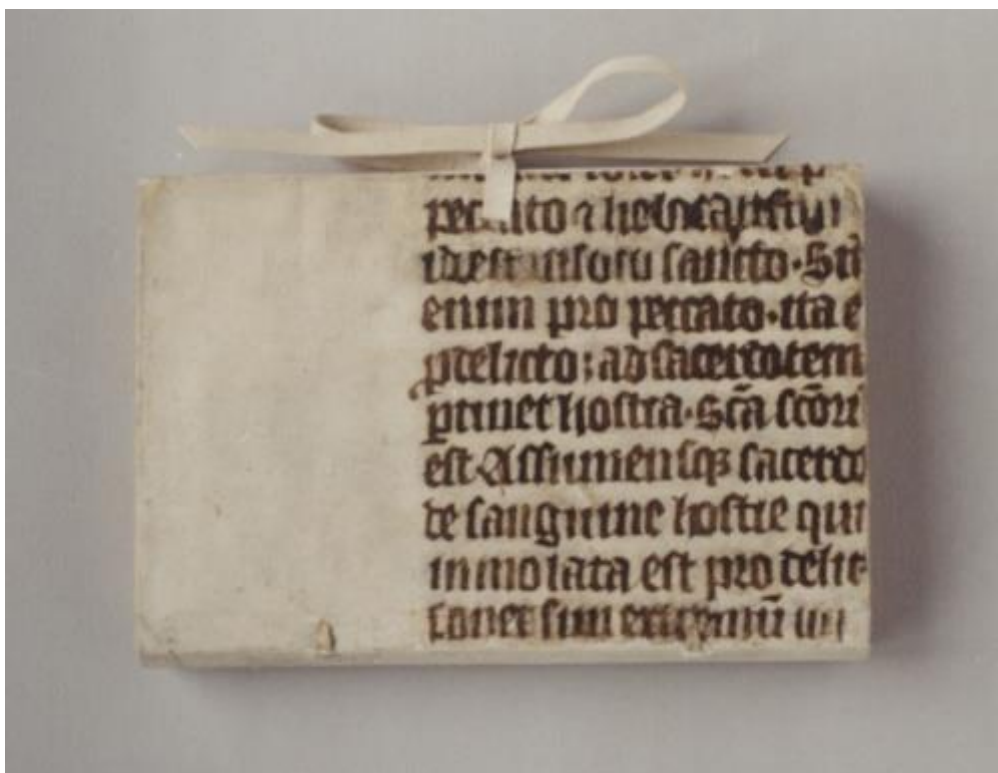 peccato ⁊ holocaustum
id est in loco sancto · Sic̅
enim pro peccato · ita e
p̲ delicto ; ad sacerdotem
p̲tinet hostia · Sc̅a sc̅or
est Assumensqꝫ sacerdo
de sanguine hostie qui
inmolata est pro delic
ponet sup̲ extremū